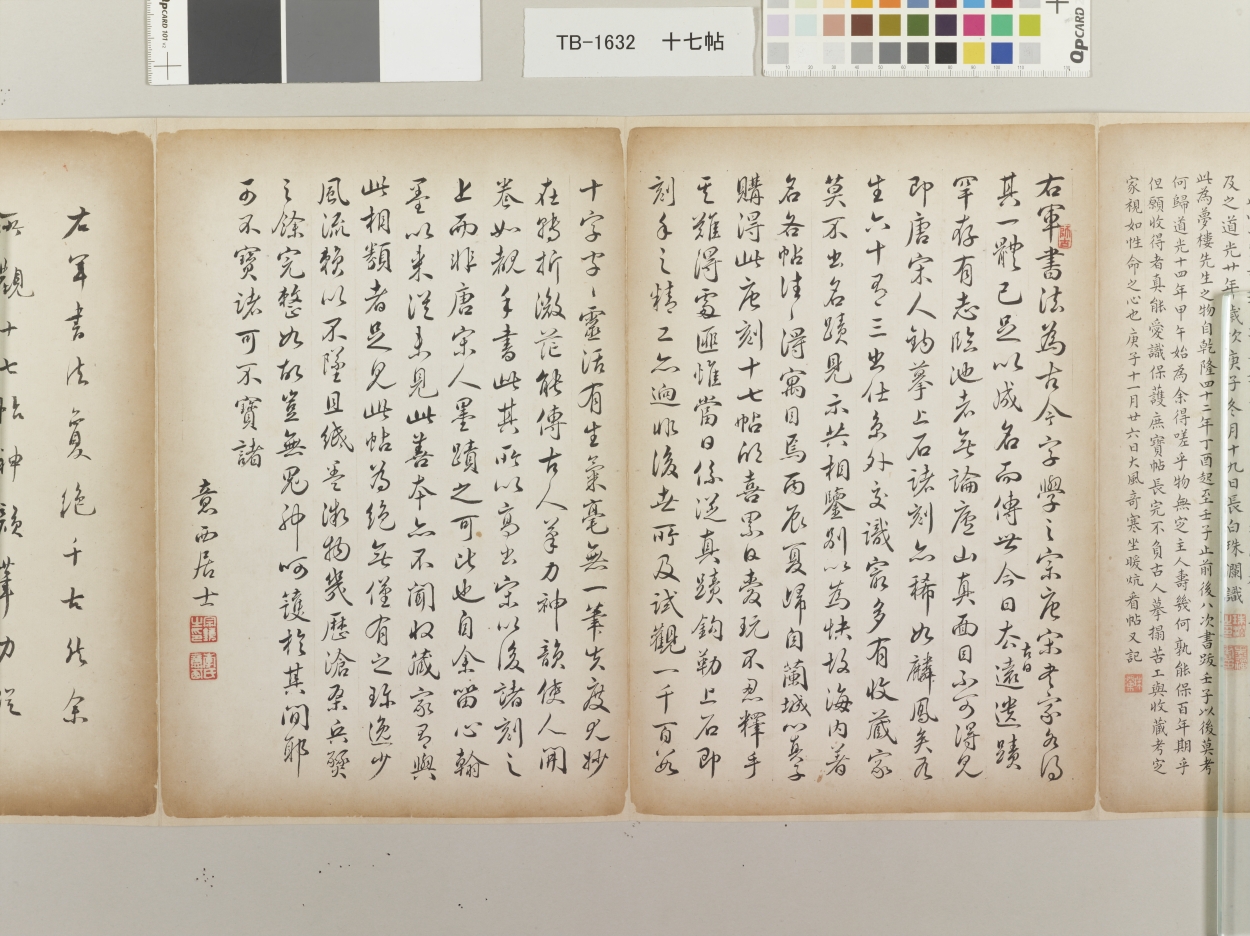 QpCARD 101
TB-1632 十七帖
QpCARD
及之道光廿年歲次庚子冬月十九日長白珠瀾識
此為夢樓先生之物自乾隆四十二年丁酉起至壬子止前後八次書跋壬子以後莫考
何歸道光十四年甲午始為余得嗟乎物無定主人壽幾何孰能保百年期乎
但願收得者真能愛識保護庶寶帖長完不負古人摹搨苦工與收藏考定
家視如性命之心也庚子十一月廿六日大風奇寒坐暖炕看帖又記
右軍書法為古今字學之宗唐宋大家各得
其一體已足以成名而傳世今日太遠遺蹟
古日
罕存有志臨池者無論廬山真面目不可得見
即唐宋人鈎摹上石諸刻亦稀如麟鳳矣
生六十有三出仕京外交識最多有收藏家
莫不出名蹟見示共相鑒別以為快故海内著
名各帖往〻得寓目焉丙辰夏歸自蘭城
購得此唐刻十七帖的喜累日愛玩不忍釋手
其難得處匪惟當日係從真蹟鈎勒上石即
刻手之精工亦迥非後世所及試觀一千百
十字字〻靈活有生氣毫無一筆失度尤妙
在轉折微茫能傳古人筆力神韻使人開
卷如覩手書此其所以高出宋以後諸刻之
上而非唐宋人墨蹟之可比也自余留心翰
墨以來從未見此善本亦不聞收藏家有與
此相類者足見此帖為絕無僅有之珠逸少
風流賴以不墜且紙墨微物幾歷滄桑兵燹
之餘完整如故豈無鬼神呵護於其間耶
可不寶諸可不寶諸
意西居士
右軍書法夐絕千古然余
所觀十七帖神韻筆力從